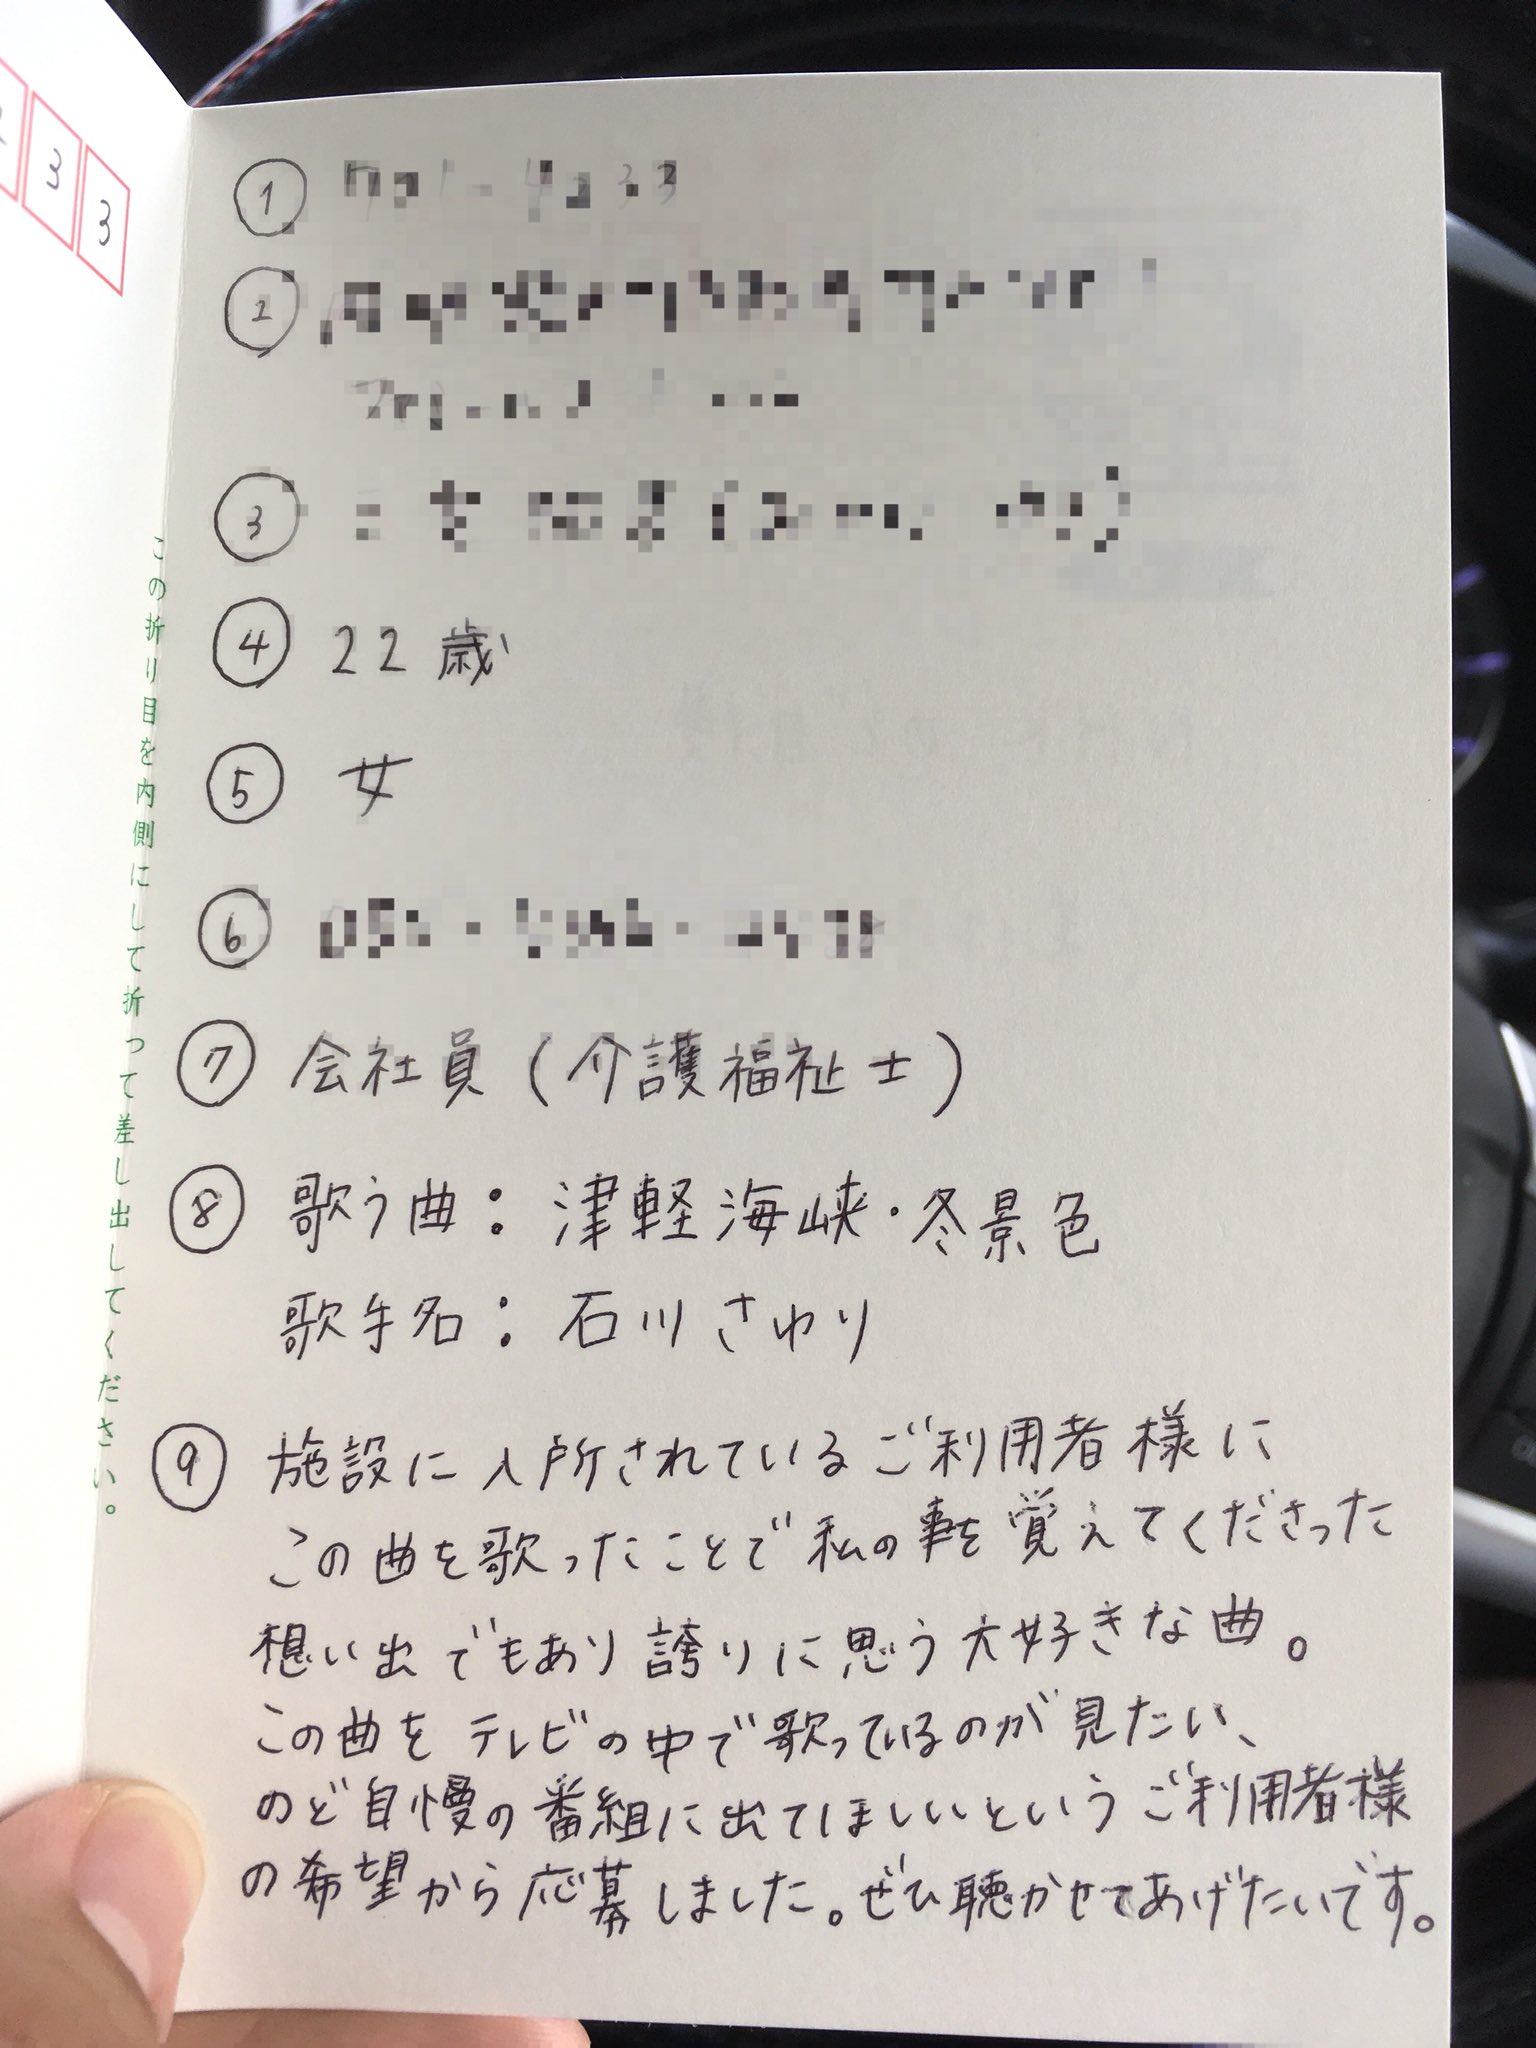 3 3
①
②
③
④ 22歳
⑤ 女
⑥
⑦ 会社員(介護福祉士)
⑧ 歌う曲:津軽海峡・冬景色
歌手名:石川さゆり
⑨ 施設に入所されているご利用者様に
この曲を歌ったことで私の事を覚えてくださった
想い出でもあり誇りに思う大好きな曲。
この曲をテレビの中で歌っているのが見たい、
のど自慢の番組に出てほしいというご利用者様
の希望から応募しました。ぜひ聴かせてあげたいです。
この折り目を内側にして折って差し出してください。